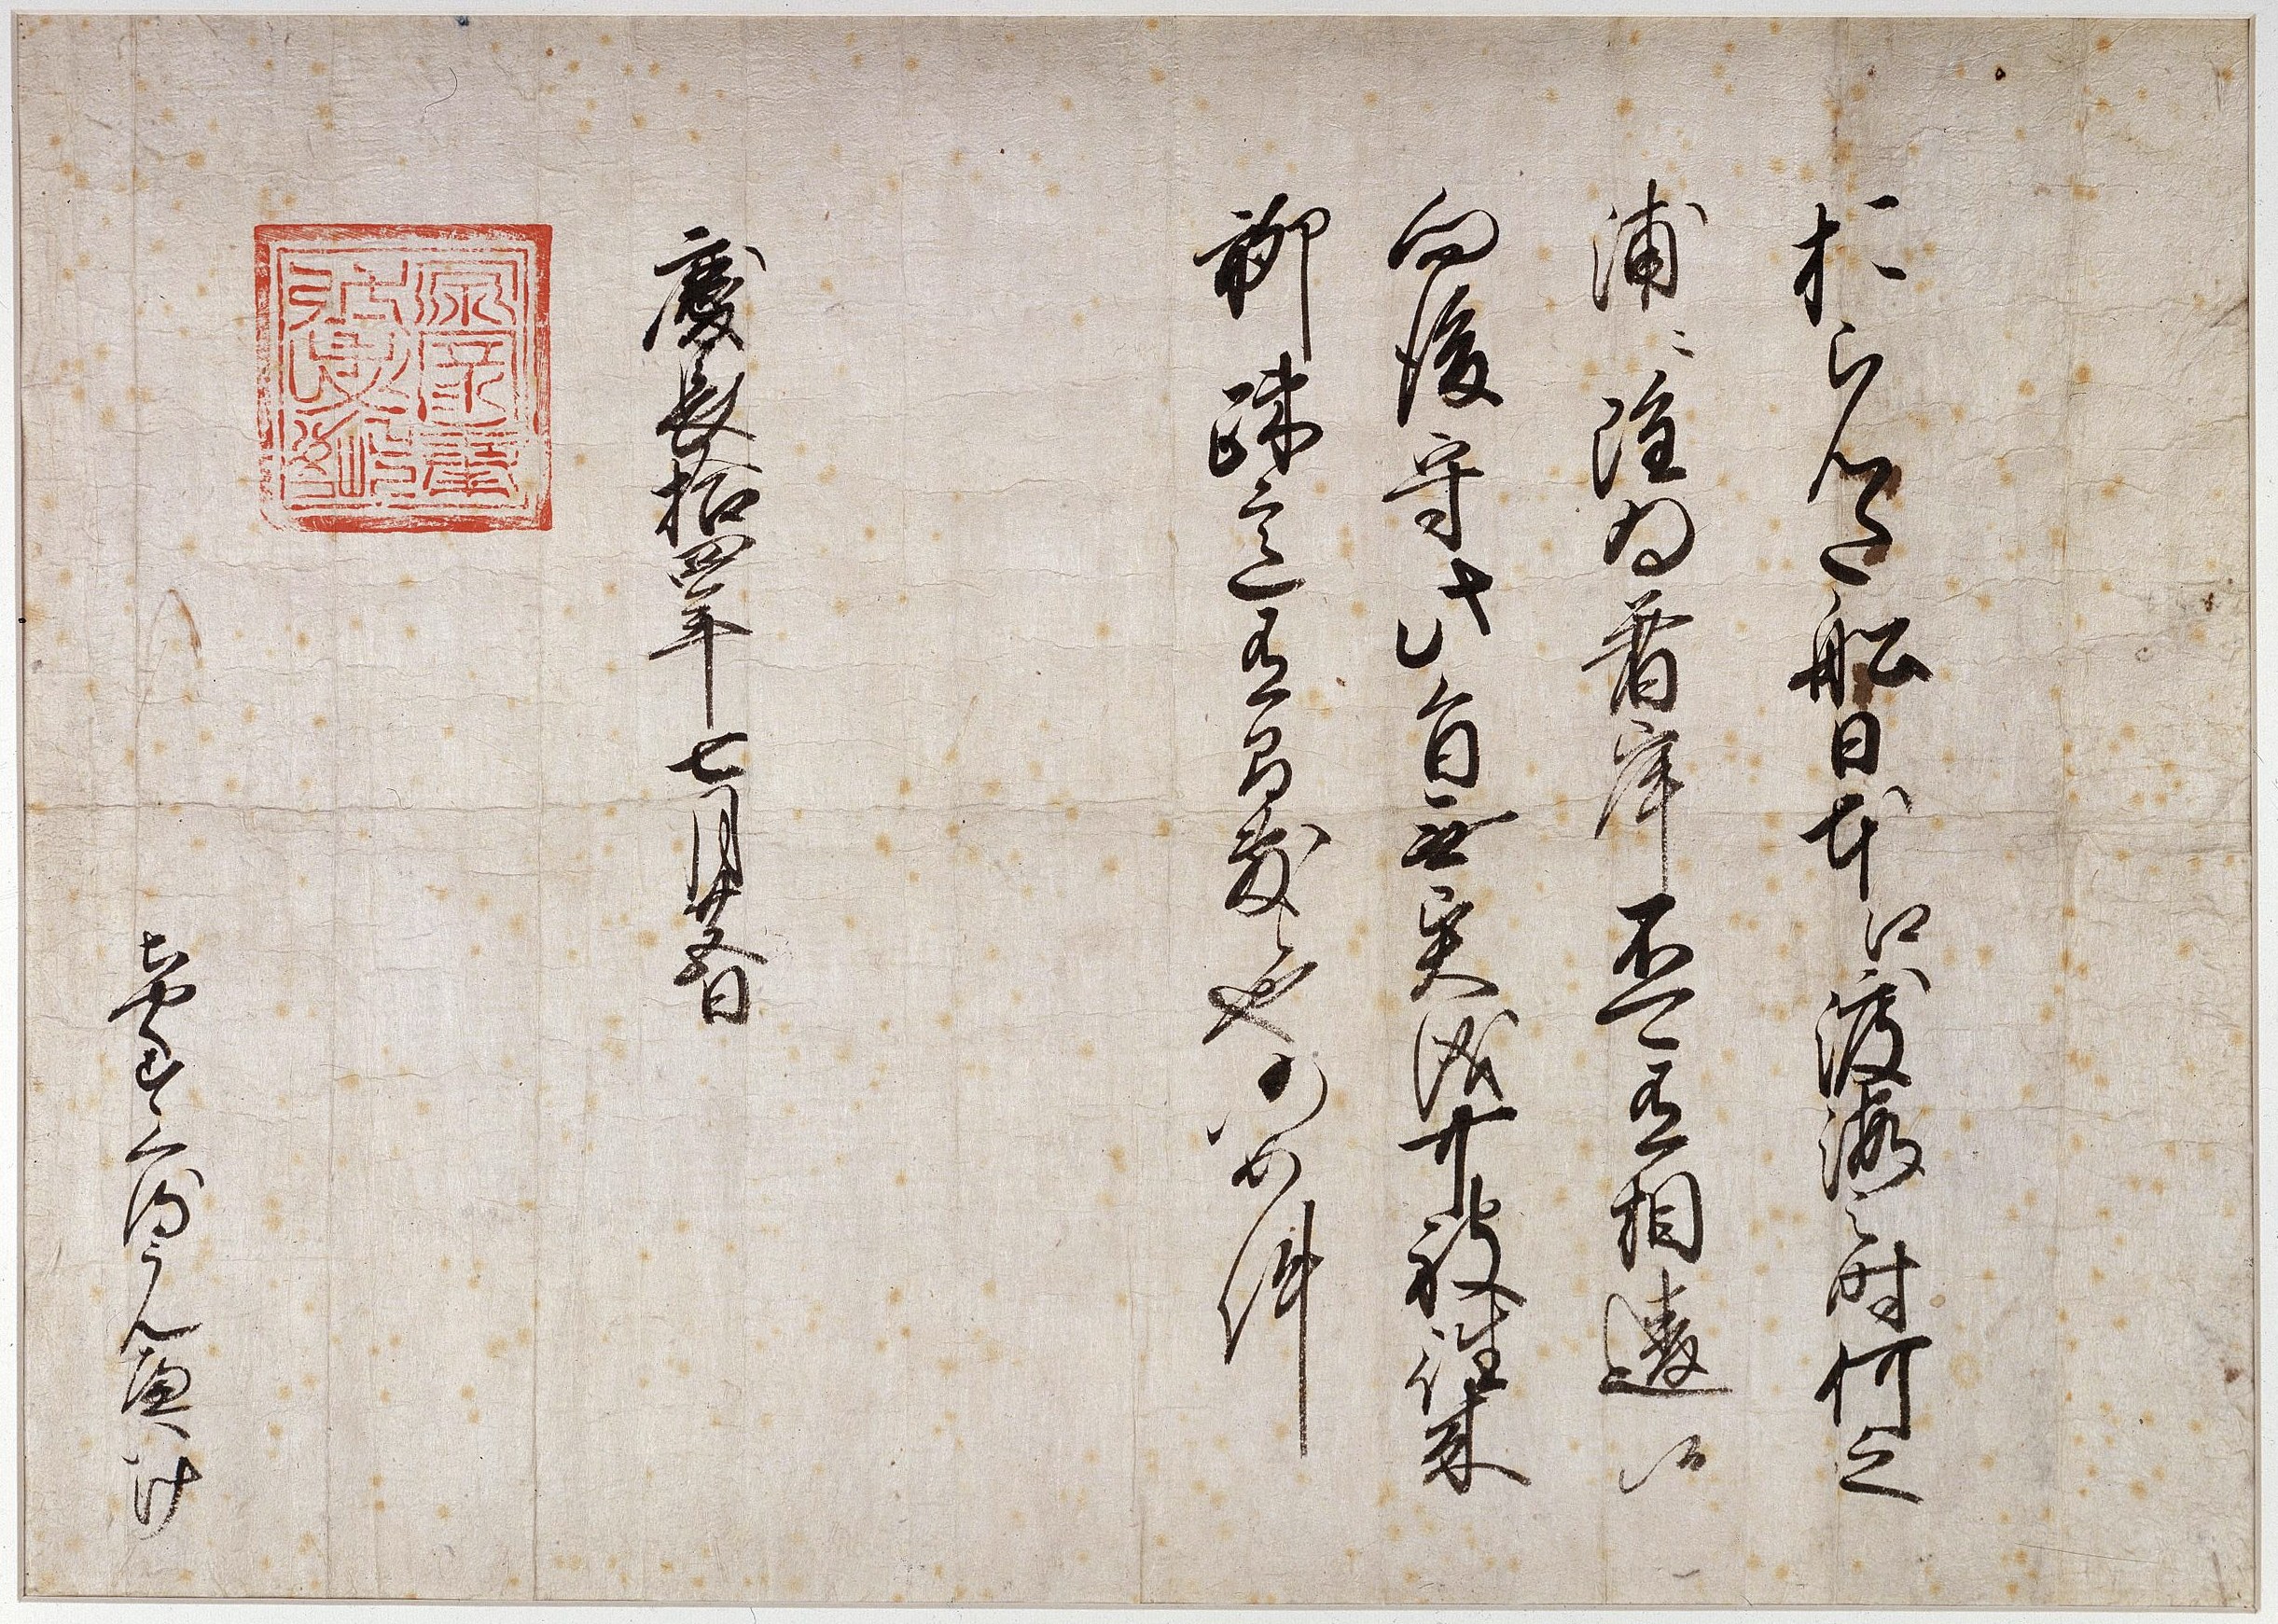 おらんた船日本江渡海之時何之
浦々雖為着岸不可有相違候
向後守此旨無異儀可被往来
聊疎意有間敷候也仍如件
慶長拾四年七月廿五日
ちやくすくるうんへいけ
源家康弘忠恕